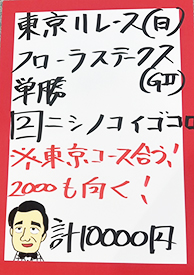 東京11レース(日)
フローラステークス
(GⅡ)
単勝
2ニシノコイゴコロ
※東京コース合う!
2000も向く!
計10000円